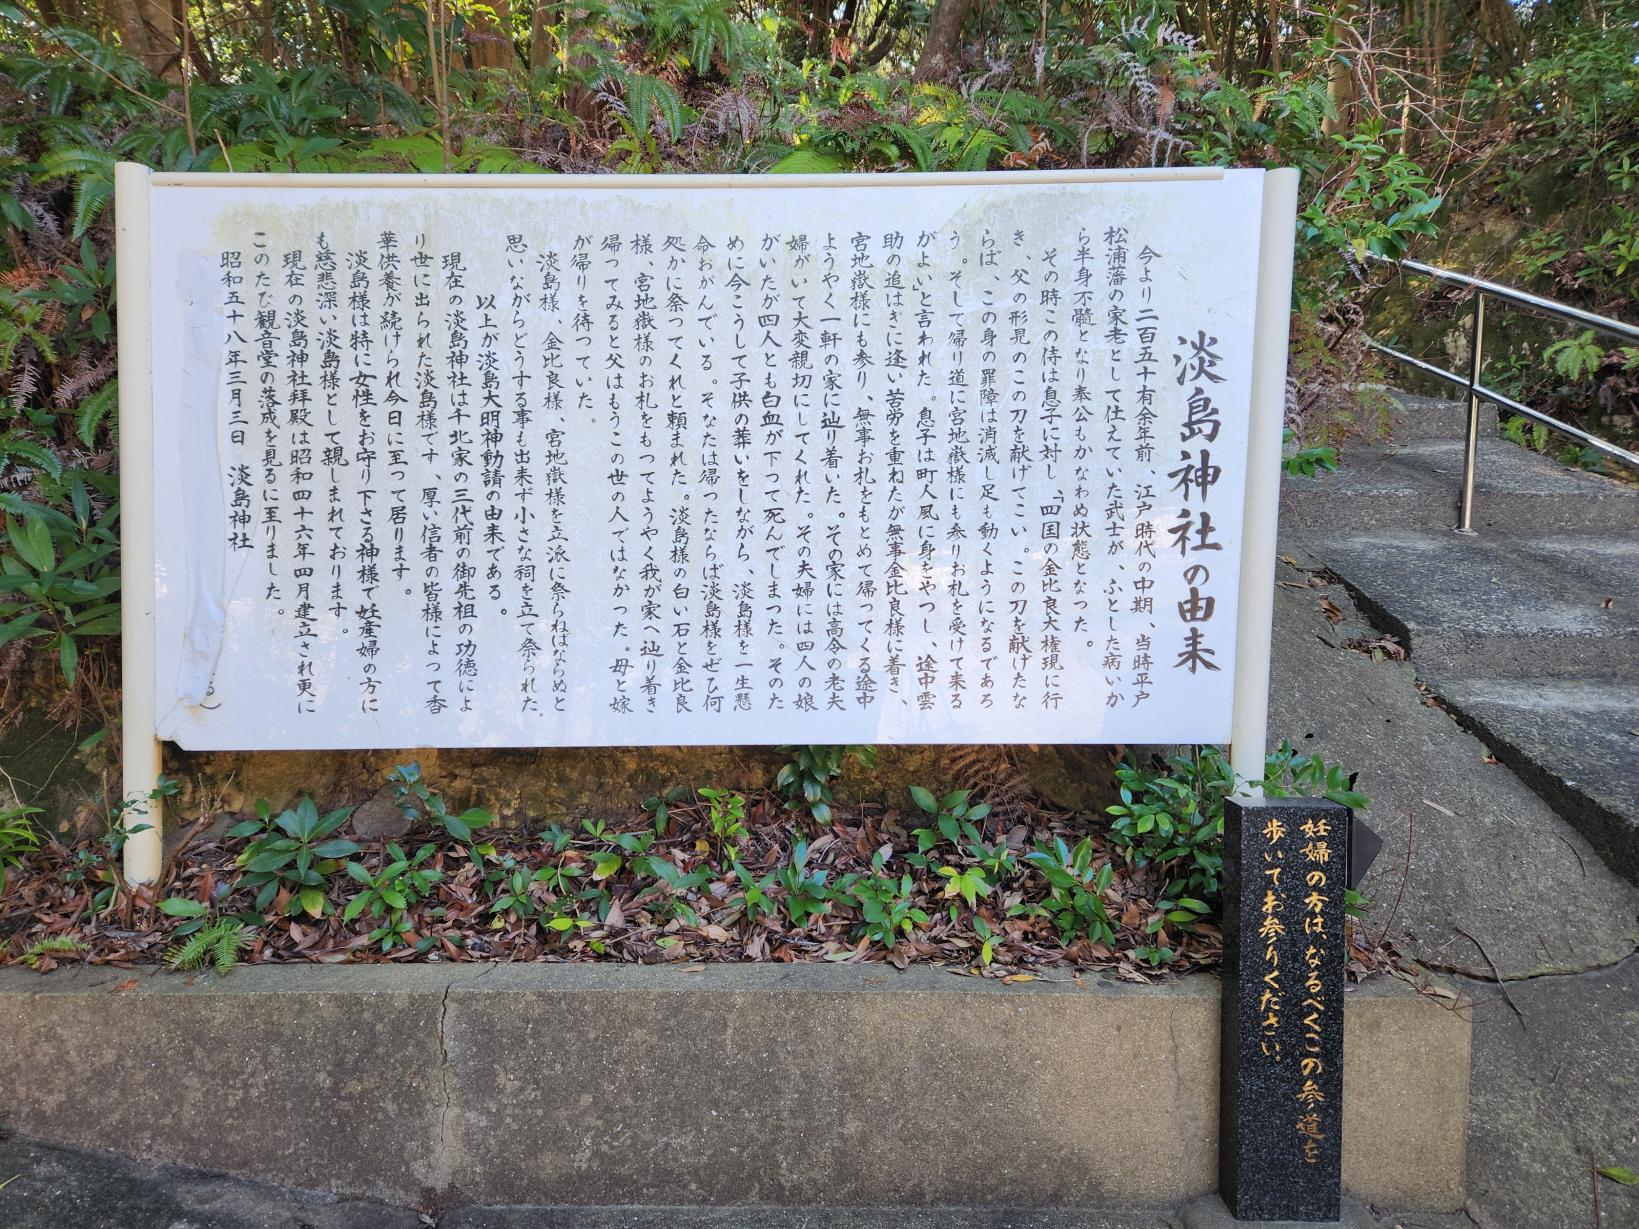 淡島神社の由来
今より二百五十有余年前、江戸時代の中期、当時平戸
松浦藩の家老として仕えていた武士が、ふとした病いか
ら半身不髄となり奉公もかなわぬ状態となった。
その時この侍は息子に対し、「四国の金比良大権現に行
き、父の形見のこの刀を献げてこい。この刀を献げたな
らば、この身の罪障は消滅し足も動くようになるであろ
う。そして帰り道に宮地嶽様にも参りお札を受けて来る
がよいと言われた。息子は町人風に身をやつし、途中雲
助の追はぎに逢い苦労を重ねたが無事金比良様に着き、
宮地嶽様にも参り、無事お札をもとめて帰ってくる途中
ようやく一軒の家に辿り着いた。その家には高令の老夫
婦がいて大変親切にしてくれた。その夫婦には四人の娘
がいたが四人とも白血が下って死んでしまった。そのた
めに今こうして子供の葬いをしながら、淡島様を一生懸
命おがんでいる。そなたは帰ったならば淡島様をぜひ何
処かに祭ってくれと頼まれた。淡島様の白い石と金比良
様、宮地嶽様のお札をもってようやく我が家へ辿り着き
帰ってみると父はもうこの世の人ではなかった。母と嫁
が帰りを待っていた。
淡島様　金比良様、宮地嶽様を立派に祭らねばならぬと
思いながらどうする事も出来ず小さな祠を立て祭られた。
以上が淡島大明神勧請の由来である。
現在の淡島神社は千北家の三代前の御先祖の功徳によ
り世に出られた淡島様です、厚い信者の皆様によって香
華供養が続けられ今日に至って居ります。
淡島様は特に女性をお守り下さる神様で妊産婦の方に
も慈悲深い淡島様として親しまれております。
現在の淡島神社拝殿は昭和四十六年四月建立され更に
このたび観音堂の落成を見るに至りました。
昭和五十八年三月三日　淡島神社
る）
妊婦の方は、なるべくこの参道を
歩いてお参りください。